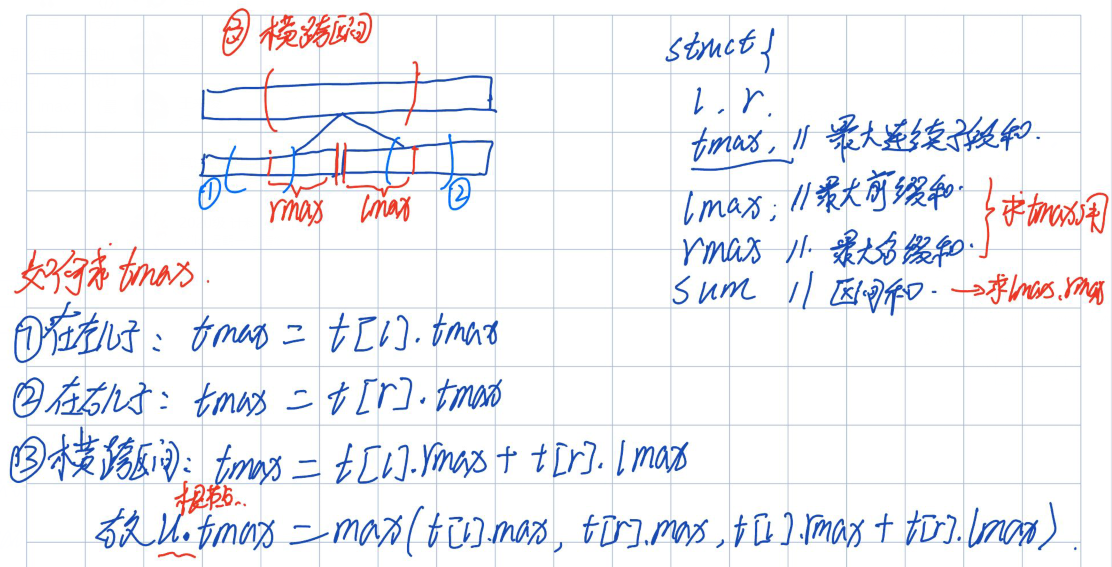 ③ 横跨区间
① rmax lmax ②
struct{
l, r,
tmax, // 最大连续子段和.
lmax; // 最大前缀和.
rmax // 最大后缀和.
} 求tmax用
sum // 区间和. →求lmax, rmax
如何求 tmax.
①在左儿子: tmax = t[l].tmax
②在右儿子: tmax = t[r].tmax
③横跨区间: tmax = t[l].rmax + t[r].lmax
根节点.
故 u.tmax = max(t[l].max, t[r].max, t[l].rmax + t[r].lmax)